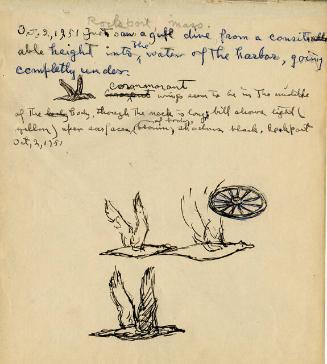 Rockport, Mass.
Oct, 3, 1951 Just saw a gull dive from a consider
able height into the water of the harbor, going
completly under.
cormorant
wings seem to be in the middle
of the body, though the neck is long, bill shows light (
yellow) upon surfaces at times black, Rockport
Oct, 3, 1951